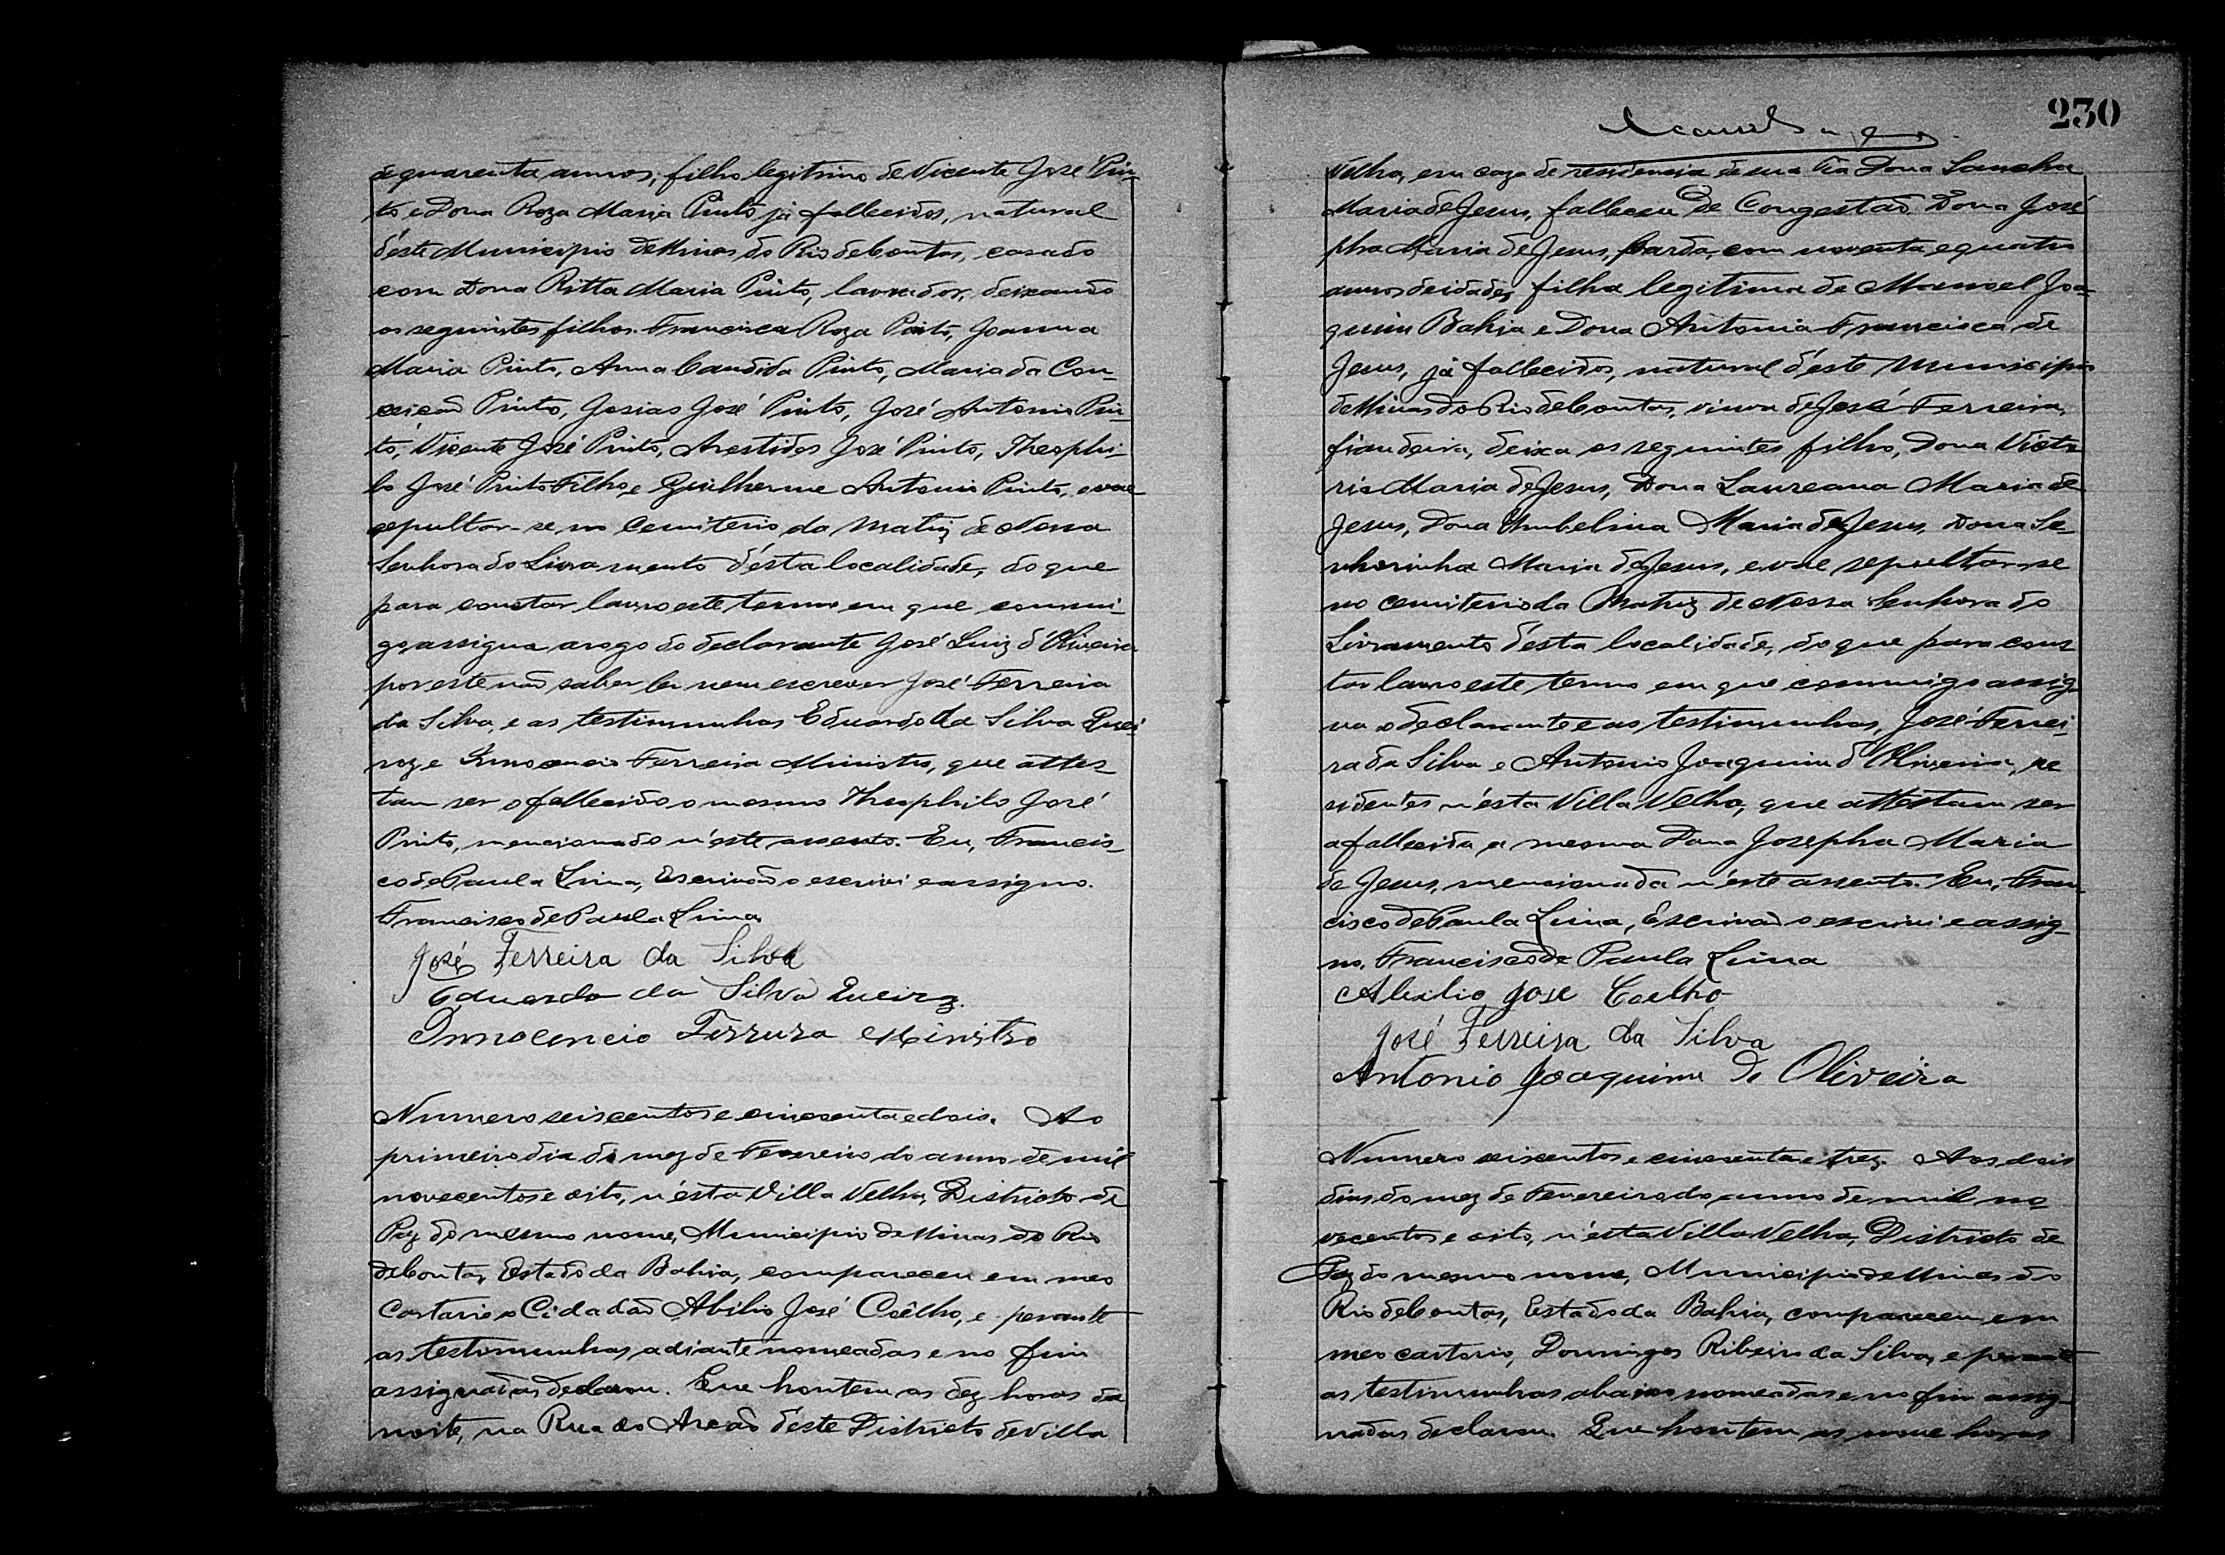 de quarenta annos, filho legitimo de Vicente José Pin-
to e Dona Roza Maria Pinto já fallecidos, natural
d'este Municipio de Minas do Rio de Contas, casado
com Dona Ritta Maria Pinto, lavrador, deixando
os seguintes filhos. Francisca Roza Pinto, Joanna
Maria Pinto, Anna Candida Pinto, Maria da Con-
ceição Pinto, Josias José Pinto, José Antonio Pin-
to, Vicente José Pinto, Arestides José Pinto, Theophi-
lo José Pinto Filho, e Guilherme Antonio Pinto, e vae
sepultar-se no Cemiterio da Matriz de Nossa
Senhora do Livramento d'esta localidade, do que
para constar lavro este termo em que commi-
go assigna a rogo do declarante José Luiz d'Oliveira
por este não saber ler nem escrever José Ferreira
da Silva, e as testimunhas Eduardo da Silva Quei-
roz e Innocencio Ferreira Ministro, que attes-
tam ser o fallecido o mesmo Theophilo José
Pinto, mencionado n'este assento. Eu, Francis-
co de Paula Lima, Escrivão o escrivi e assigno.
Francisco de Paula Lima
José Ferreira da Silva
Eduardo da Silva Queiroz.
Innocencio Ferrura Ministro
Numero seiscentos e cincoenta e dois. Ao
primeiro dia do mez de Fevereiro do anno de mil
novecentos e oito, n'esta Villa Velha, Districto de
Paz do mesmo nome, Municipio de Minas do Rio
de Contas, Estado da Bahia, compareceu em meo
Cartorio o Cidadão Abilio José Coêlho, e perante
as testimunhas adiante nomeadas e no fim
assignadas declarou. Que hontem as dez horas da
noite, na Rua do Areão d'este Districto de Villa
230
Velha, em caza de residencia de sua tia Dona Sancha
Maria de Jesus, falleceu de Congestão Dona José
pha Maria de Jesus, parda, com noventa e quatro
annos de idade, filha legitima de Manoel Joa-
quim Bahia e Dona Antonia Francisca de
Jesus, já fallecidos, natural d'este Municipio
de Minas do Rio de Contas, viuva de José Ferreira,
fiandeira, deixa os seguintes filho, Dona Victo
ria Maria de Jesus, Dona Laureana Maria de
Jesus, Dona Umbelina Maria de Jesus, Dona Se-
nhorinha Maria de Jesus, e vae sepultar-se
no cemiterio da Matriz de Nossa Senhora do
Livramento d'esta localidade, do que para cons
tar lavro este termo em que commigo assig
na o declarante e as testimunhas, José Ferrei-
ra da Silva e Antonio Joaquim d'Oliveira, re
sidentes n'esta Villa Velha, que attestam ser
a fallecida a mesma Dona Josepha Maria
de Jesus, mencionada n'este assento. Eu, Fran-
cisco de Paula Lima, Escrivão o escrivi e assig-
no. Francisco de Paula Lima
Abilio José Coelho
José Ferreira da Silva
Antonio Joaquim de Oliveira
Numero seiscentos e cincoenta e trez. Aos dois
dias do mez de Fevereiro do anno de mil no
vecentos e oito, n'esta Villa Velha, Districto de
Paz do mesmo nome, Municipio de Minas do
Rio de Contas, Estado da Bahia, compareceu em
meo cartorio, Domingos Ribeiro da Silva, e perante
as testimunhas abaixo nomeadas e no fim assig-
nadas declarou. Que hontem as nove horas